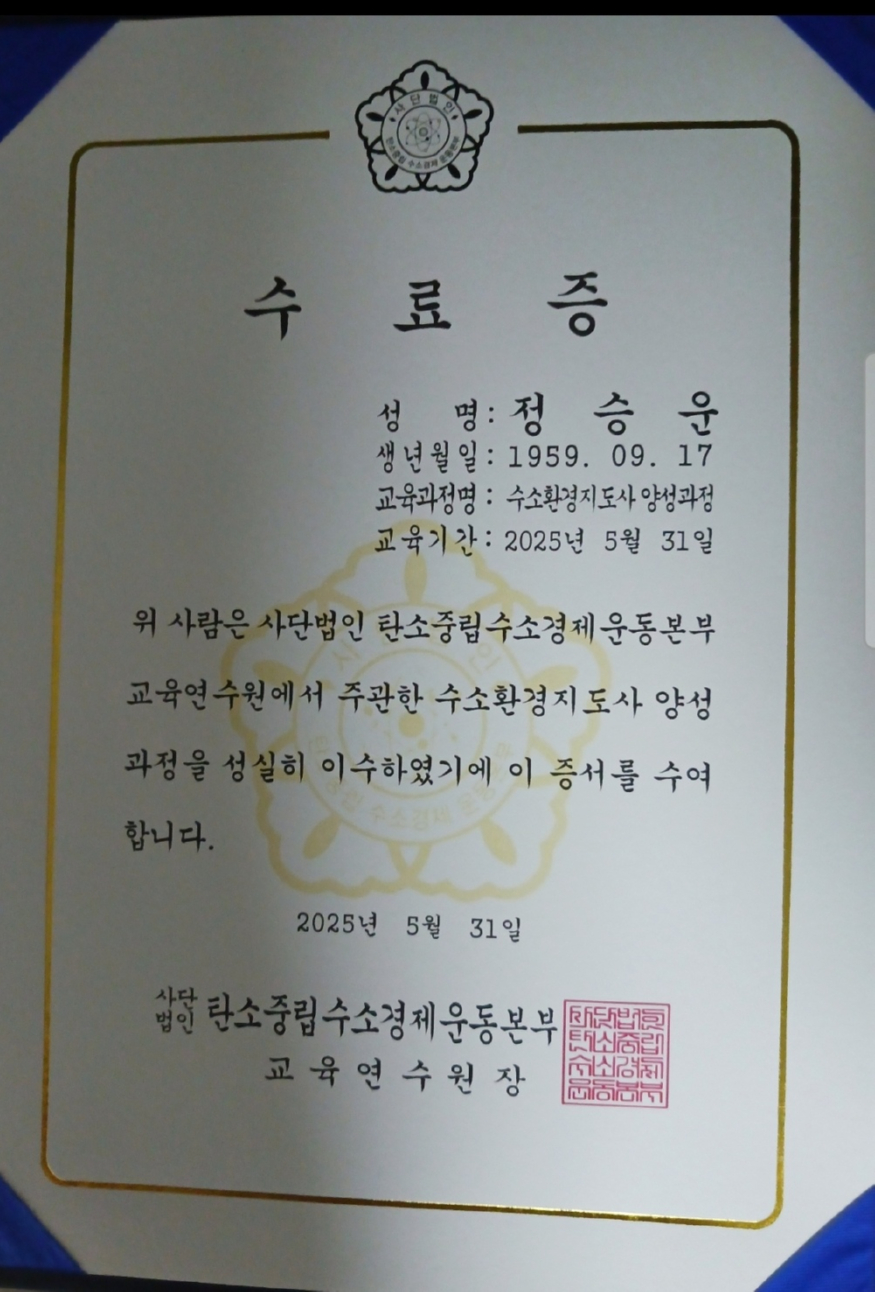 사단법인
탄소중립 수소경제 운동본부
수 료 증
성 명 : 정 승 운
생년월일 : 1959. 09. 17
교육과정명 : 수소환경지도사 양성과정
교육기간 : 2025년 5월 31일
위 사람은 사단법인 탄소중립수소경제운동본부
교육연수원에서 주관한 수소환경지도사 양성
과정을 성실히 이수하였기에 이 증서를 수여
합니다.
2025년 5월 31일
사단
법인 탄소중립수소경제운동본부
교육연수원장